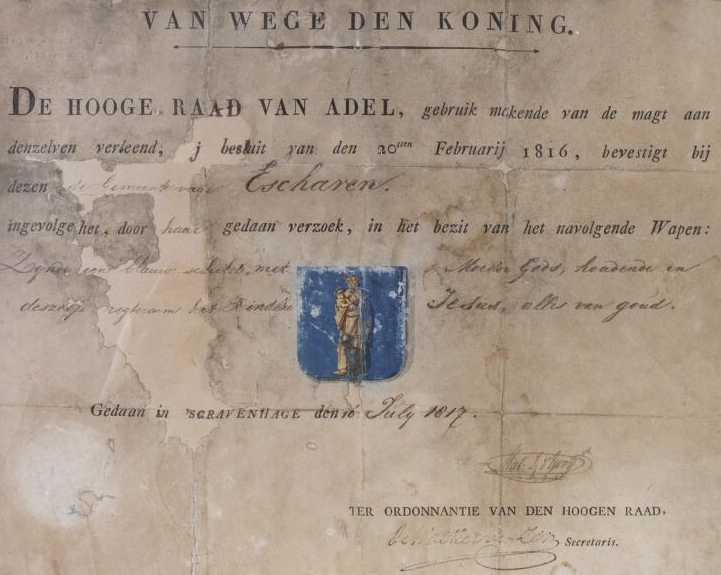 VAN WEGE DEN KONING.
DE HOOGE RAAD VAN ADEL, gebruik makende van de magt aan
denzelven verleend, j besluit van den 20sten Februarij 1816, bevestigt bij
dezen de Gemeente van Escharen.
ingevolge het, door haar gedaan verzoek, in het bezit van het navolgende Wapen:
Zijnde een blauw schild, met Moeder Gods, houdende in
deszelfs regterarm het Kindje Jesus, alles van goud.
Gedaan in 'SGRAVENHAGE den 16 July 1817.
TER ORDONNANTIE VAN DEN HOOGEN RAAD,
Secretaris.